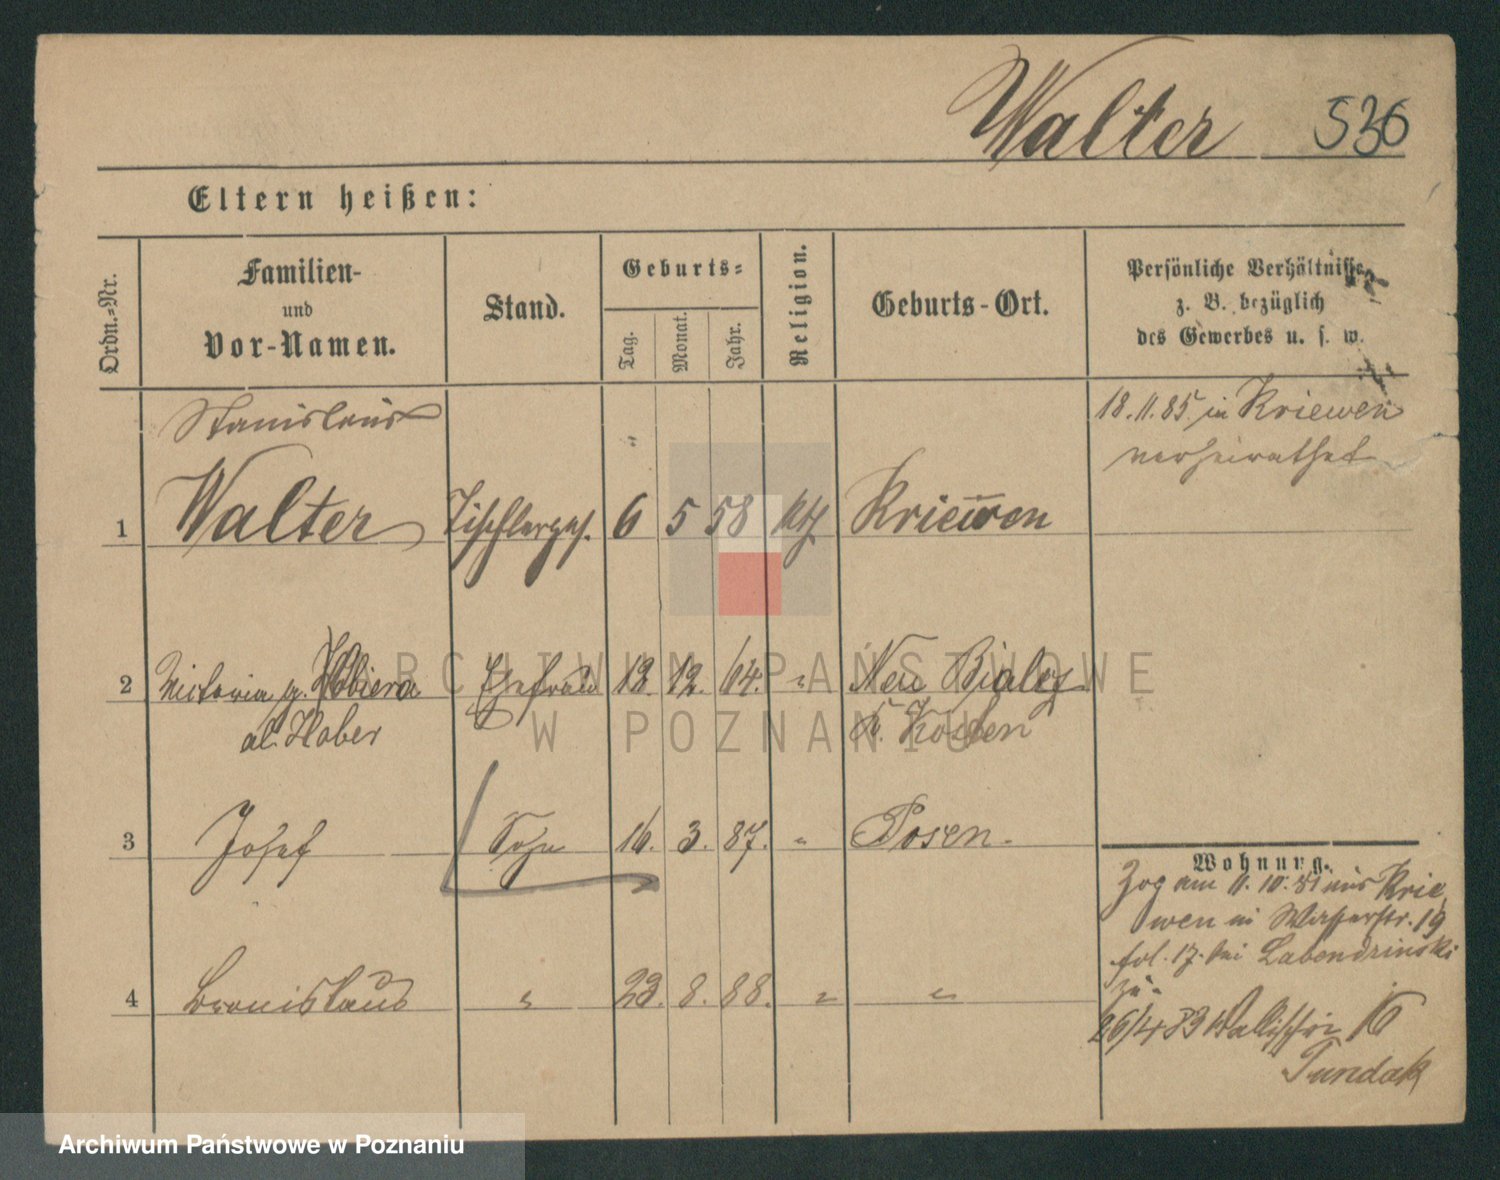 Walter 536
Eltern heißen:
Ordn.-Nr.
Familien-
und
Vor-Namen.
Stand.
Geburts-
Tag.
Monat.
Jahr.
Religion.
Geburts-Ort.
Persönliche Verhältnisse
z. B. bezüglich
des Gewerbes u. s. w.
Stanislaus
18.11.85 in Kriewen
verheirathet
1 Walter Tischlerges. 6 5 58 kth. Kriewen
2 Victoria g. Hobiera Ehefrau 12. 64. " Neu Bialcz
al. Haber K. Kosten
3 Josef Sohn 16. 3. 87. " Posen.
Wohnung.
Zog am 11.10.81 aus Krie
wen in Wasserstr. 19
fol. 17. bei Labendzinski
zu.
4 Bronislaus " 23. 8. 88. " "
26/4 83 Wallischei 16
Tundak
ARCHIWUM PAŃSTWOWE
W POZNANIU
Archiwum Państwowe w Poznaniu